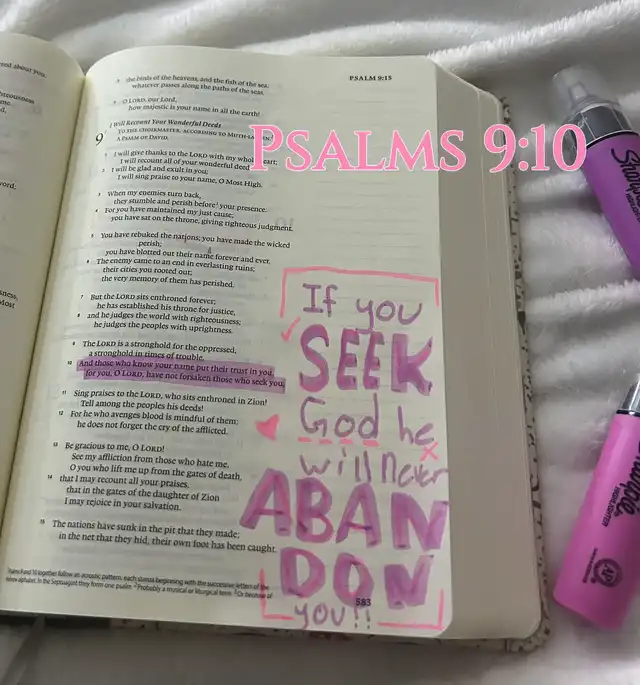 PSALM 9:15
the birds of the heavens, and the fish of the sea,
whatever passes along the paths of the seas.
9 O LORD, our Lord,
how majestic is your name in all the earth!
I Will Recount Your Wonderful Deeds
9 TO THE CHOIRMASTER: ACCORDING TO MUTH-LABBEN.
A PSALM OF DAVID.
PSALMS 9:10
1 I will give thanks to the LORD with my whole heart;
I will recount all of your wonderful deeds
2 I will be glad and exult in you;
I will sing praise to your name, O Most High.
3 When my enemies turn back,
they stumble and perish before your presence.
4 For you have maintained my just cause;
you have sat on the throne, giving righteous judgment.
5 You have rebuked the nations; you have made the wicked
perish;
you have blotted out their name forever and ever.
6 The enemy came to an end in everlasting ruins;
their cities you rooted out;
the very memory of them has perished.
7 But the LORD sits enthroned forever;
he has established his throne for justice,
8 and he judges the world with righteousness;
he judges the peoples with uprightness.
9 The LORD is a stronghold for the oppressed,
a stronghold in times of trouble.
10 And those who know your name put their trust in you,
for you, O LORD, have not forsaken those who seek you.
11 Sing praises to the LORD, who sits enthroned in Zion!
Tell among the peoples his deeds!
12 For he who avenges blood is mindful of them;
he does not forget the cry of the afflicted.
13 Be gracious to me, O LORD!
See my affliction from those who hate me,
O you who lift me up from the gates of death,
14 that I may recount all your praises,
that in the gates of the daughter of Zion
I may rejoice in your salvation.
15 The nations have sunk in the pit that they made;
in the net that they hid, their own foot has been caught.
If you
SEEK
God he
will never
ABAN
DON
you!!
583
Sharpie
HIGHLIGHTER
AP